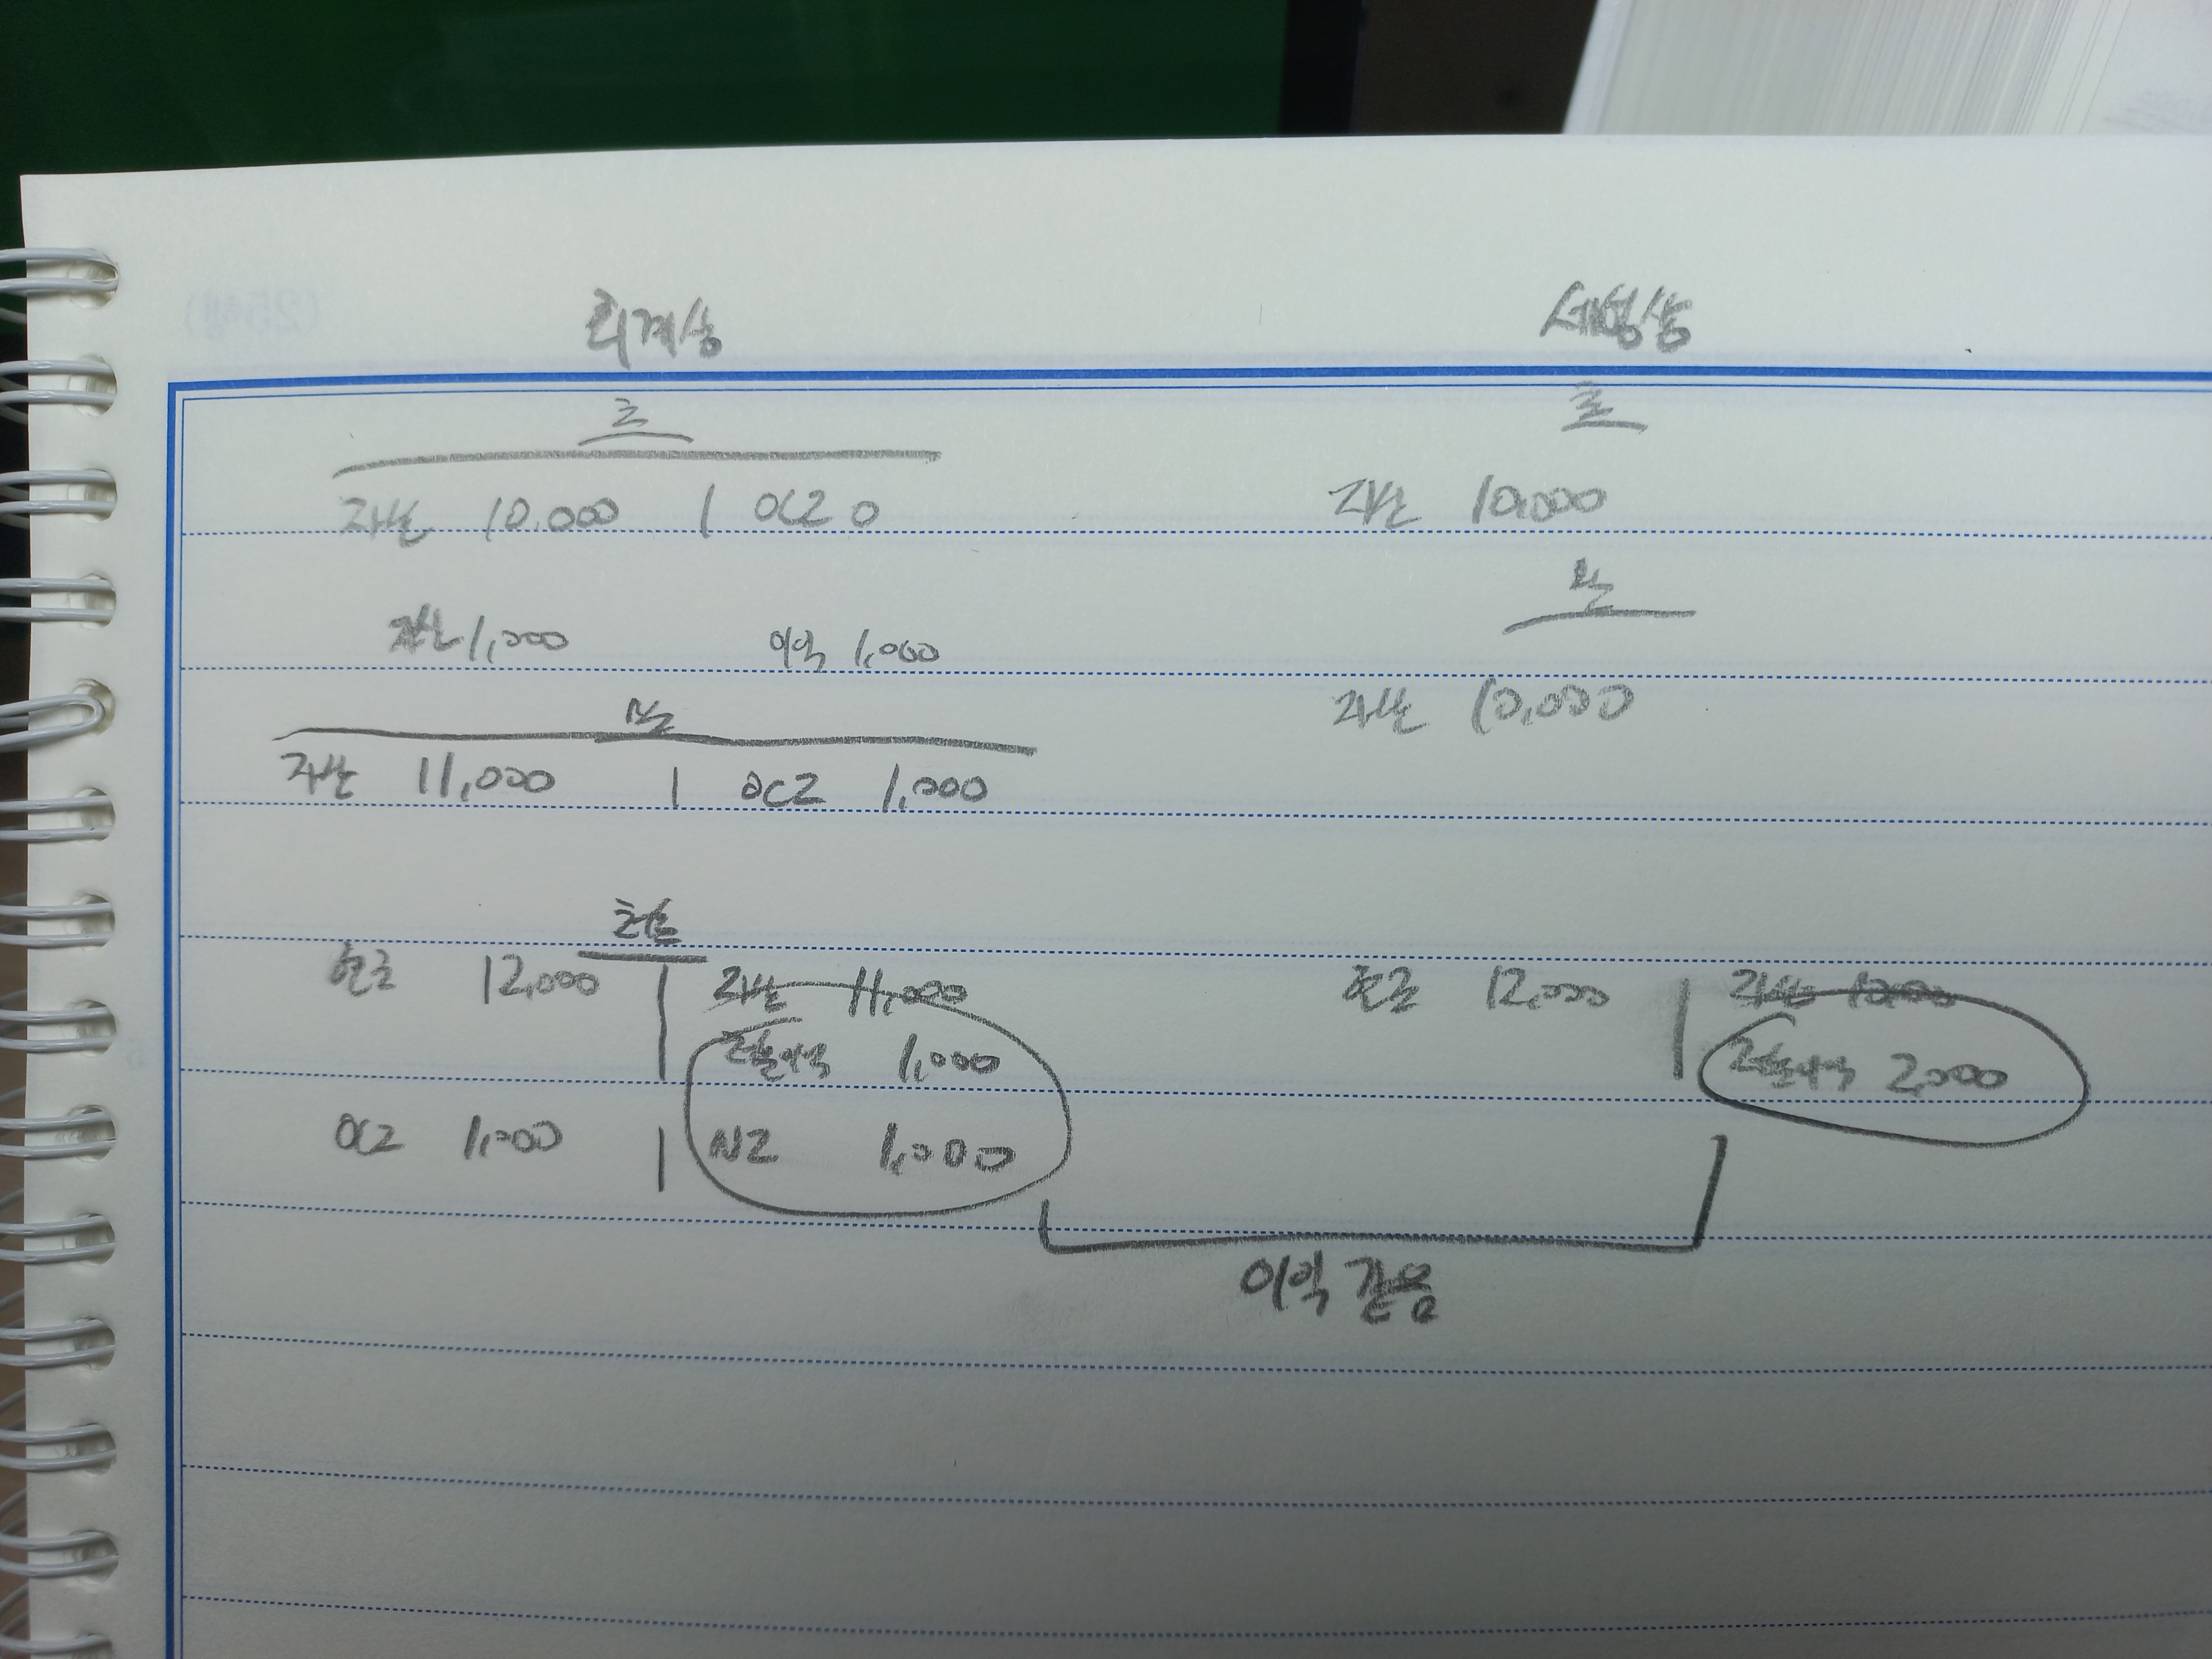 회계상 세법상
초 초
자산 10,000 | OCI 0 자산 10,000
말
자산 1,000 이익 1,000
말 자산 10,000
자산 11,000 | OCI 1,000
처분
현금 12,000 자산 11,000 현금 12,000 자산 10,000
처분이익 1,000 처분이익 2,000
OCI 1,000 NI 1,000
이익 같음